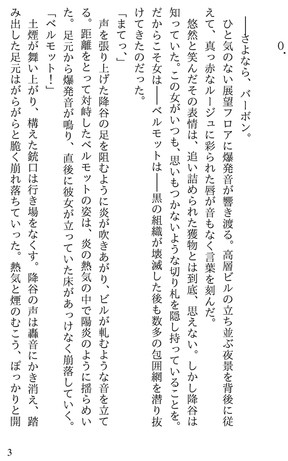 0．
――さよなら、バーボン。
　ひと気のない展望フロアに爆発音が響き渡る。高層ビルの立ち並ぶ夜景を背後に従
えて、真っ赤なルージュに彩られた唇が音もなく言葉を刻んだ。
　悠然と笑んだその表情は、追い詰められた獲物とは到底、思えない。しかし降谷は
知っていた。この女がいつも、思いもつかないような切り札を隠し持っていることを。
だからこそ女は――ベルモットは――黒の組織が壊滅した後も多数の包囲網を潜り抜
けてきたのだった。
「まてっ、」
　声を張り上げた降谷の足を阻むように炎が吹きあがり、ビルが軋むような音を立て
る。距離をとって対峙したベルモットの姿は、炎の熱気の中で陽炎のように揺らめい
た。足元から爆発音が鳴り、直後に彼女が立っていた床があっけなく崩落していく。
「ベルモット！」
　土煙が舞い上がり、構えた銃口は行き場をなくす。降谷の声は轟音にかき消え、踏
み出した足元はがらがらと脆く崩れ落ちていった。熱気と煙のむこう、ぽっかりと開
3